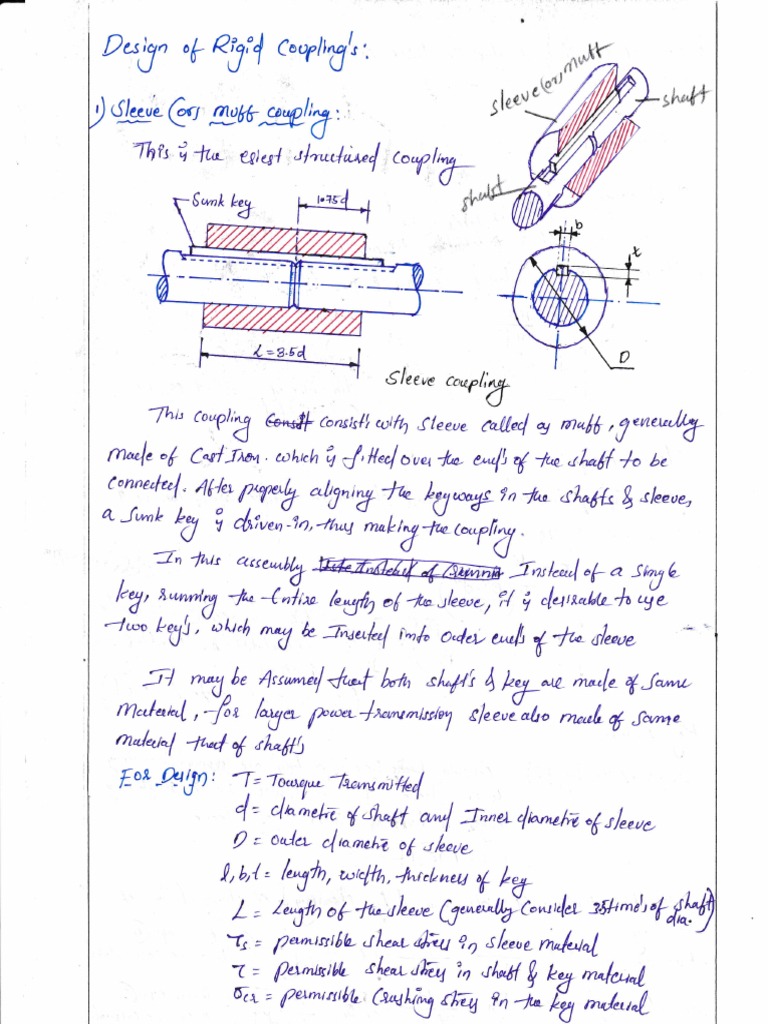 Design of Rigid Coupling's:
1) Sleeve (or) muff coupling:
This is the esiest structured coupling
sleeve(or) muff
shaft
shaft
Sunk key
1.75d
b
t
L=3.5d
D
Sleeve coupling
This coupling consist's with sleeve called as muff, generally
made of Cast Iron. which is fitted over the end's of the shaft to be
connected. After properly aligning the keyways in the shafts & sleeve,
a sunk key is driven-in, thus making the coupling.
In this assembly Instead of a single
key, running the Entire length of the sleeve, it is desirable to use
two key's, which may be Inserted into outer end's of the sleeve
It may be Assumed that both shaft's & key are made of same
Material, for larger power transmission sleeve also made of same
material that of shaft's
For Design: T = Tourque Transmitted
d = diametre of shaft and Inner diametre of sleeve
D = outer diametre of sleeve
l,b,t = length, width, thickness of key
L = Length of the sleeve (generally Consider 3.5 time's of shaft dia.)
τs = permissible shear stress in sleeve material
τ = permissible shear stress in shaft & key material
σcr = permissible Crushing stress in the key material